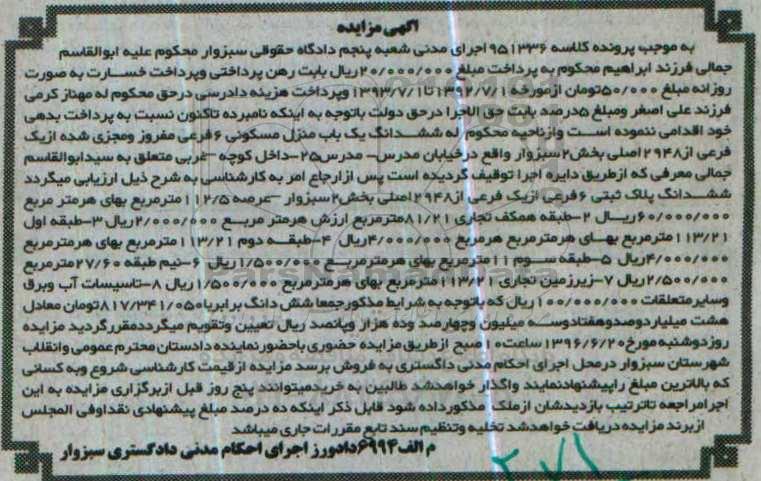 آگهی مزایده
به موجب پرونده کلاسه ۹۵۱۳۳۶ اجرای مدنی شعبه پنجم دادگاه حقوقی سبزوار محکوم علیه ابوالقاسم
جمالی فرزند ابراهیم محکوم به پرداخت مبلغ ۲۰/۰۰۰/۰۰۰ ریال بابت رهن پرداختی وپرداخت خسارت به صورت
روزانه مبلغ ۵۰/۰۰۰ تومان ازمورخه ۱۳۹۲/۷/۱ تا ۱۳۹۳/۷/۱ وپرداخت هزینه دادرسی درحق محکوم له مهناز کرمی
فرزند علی اصغر ومبلغ ۵درصد بابت حق الاجرا درحق دولت باتوجه به اینکه نامبرده تاکنون نسبت به پرداخت بدهی
خود اقدامی ننموده است وازناحیه محکوم له ششدانگ یک باب منزل مسکونی ۶فرعی مفروز ومجزی شده ازیک
فرعی از۲۹۴۸ اصلی بخش۲سبزوار واقع درخیابان مدرس- مدرس۲۵-داخل کوچه -غربی متعلق به سیدابوالقاسم
جمالی معرفی که ازطریق دایره اجرا توقیف گردیده است پس ازارجاع امر به کارشناسی به شرح ذیل ارزیابی میگردد
ششدانگ پلاک ثبتی ۶فرعی ازیک فرعی از۲۹۴۸اصلی بخش۲سبزوار -عرصه ۱۱۲/۵مترمربع بهای هرمتر مربع
۶۰/۰۰۰/۰۰۰ریال ۲-طبقه همکف تجاری ۸۱/۲۱مترمربع ارزش هرمتر مربع ۲/۰۰۰/۰۰۰ریال ۳-طبقه اول
۱۱۳/۲۱مترمربع بهای هرمترمربع هرمربع ۴/۰۰۰/۰۰۰ریال ۴-طبقه دوم ۱۱۳/۲۱مترمربع بهای هرمترمربع
۴/۰۰۰/۰۰۰ریال ۵-طبقه سوم ۱۱مترمربع بهای هرمترمربع ۱/۵۰۰/۰۰۰ریال ۶-نیم طبقه ۲۷/۶۰مترمربع
۲/۵۰۰/۰۰۰ریال ۷-زیرزمین تجاری ۱۱۳/۲۱مترمربع بهای هرمترمربع ۱/۵۰۰/۰۰۰ ریال ۸-تاسیسات آب وبرق
وسایرمتعلقات ۱۰۰/۰۰۰/۰۰۰ریال که باتوجه به شرایط مذکورجمعا شش دانگ برابربا ۸۱۷/۳۴۱/۰۵۰تومان معادل
هشت میلیاردوصدوهفتادوسه میلیون وچهارصد وده هزار وپانصد ریال تعیین وتقویم میگرددمقررگردید مزایده
روزدوشنبه مورخ ۱۳۹۶/۶/۲۰ساعت۱۰صبح ازطریق مزایده حضوری باحضورنماینده دادستان محترم عمومی وانقلاب
شهرستان سبزوار درمحل اجرای احکام مدنی دادگستری به فروش برسد مزایده ازقیمت کارشناسی شروع وبه کسانی
که بالاترین مبلغ راپیشنهادنمایند واگذار خواهدشد طالبین به خریدمیتوانند پنج روز قبل ازبرگزاری مزایده به این
اجرامراجعه تاترتیب بازدیدشان ازملک مذکورداده شود قابل ذکر اینکه ده درصد مبلغ پیشنهادی نقدا فی المجلس
ازبرنده مزایده دریافت خواهدشد تخلیه وتنظیم سند تابع مقررات جاری میباشد
م الف۶۹۹۴دادورز اجرای احکام مدنی دادگستری سبزوار
ParsNamadData
۲۷۱